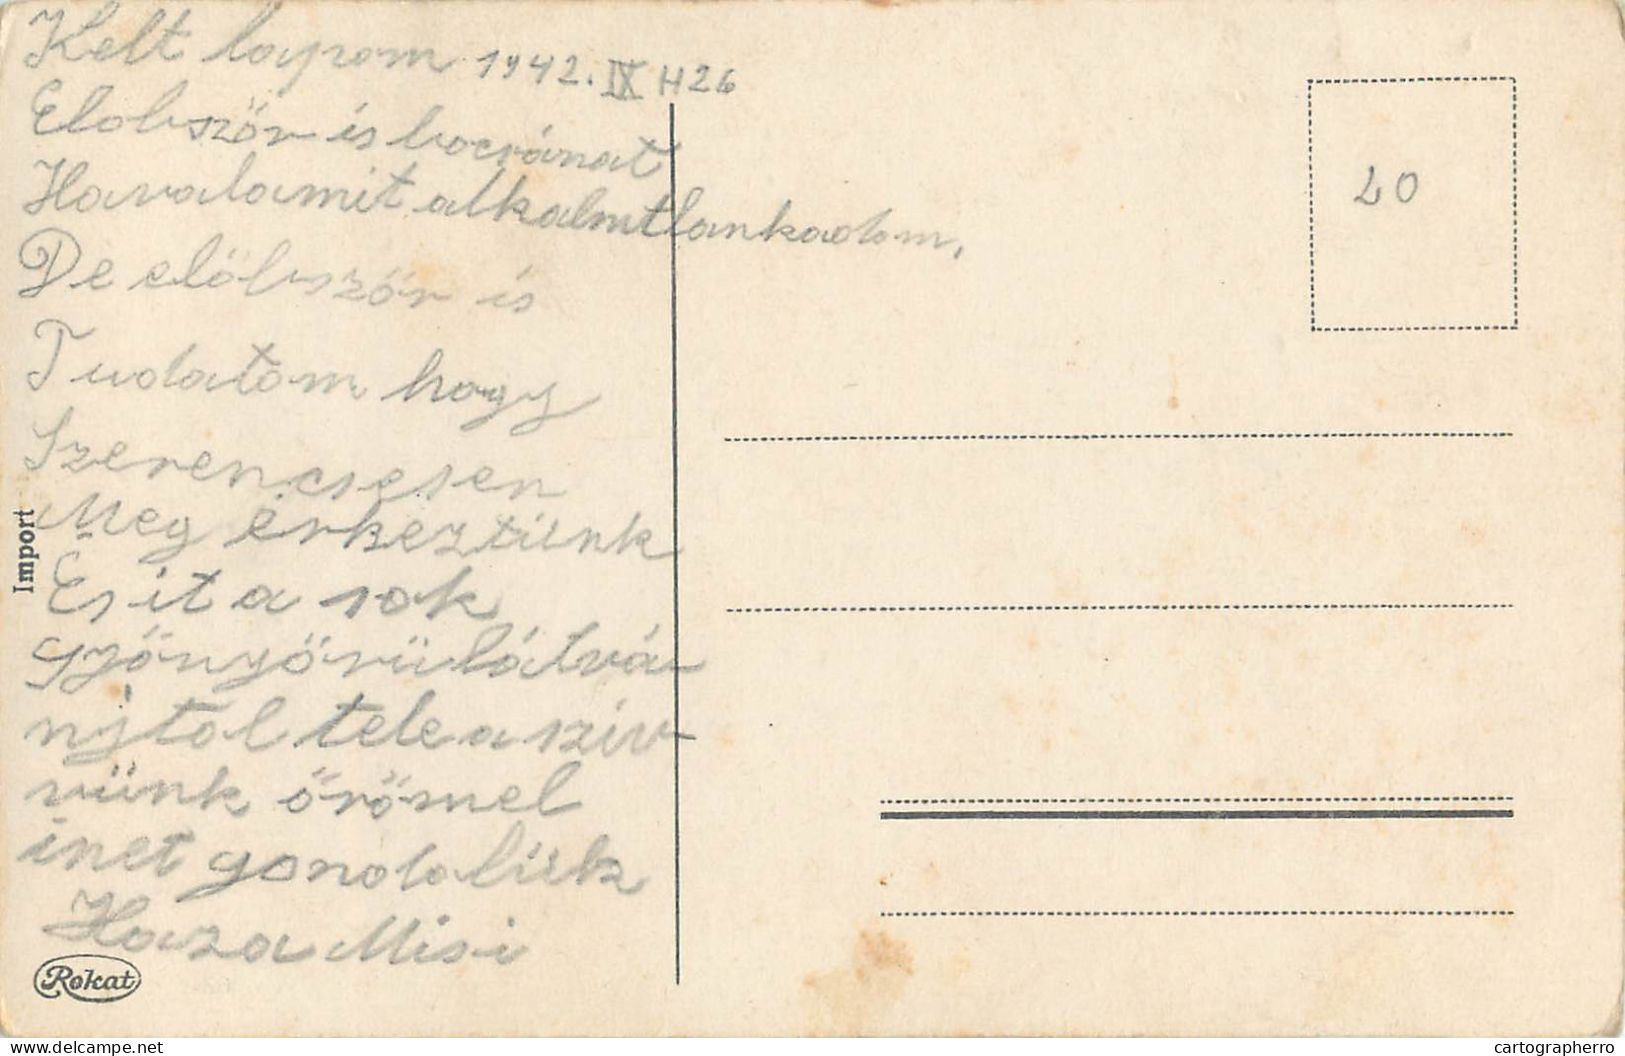 Kelt lapom 1942. IX H26
Elobször is bocsánat
Havalamit alkalmtlankadom,
De elöbször is
Tudatom hogy
Szerencsesen
Meg érkeztünk
És it a sok
gyönyörü látvá-
nytol tele a sziv-
vünk örömel
inet gondolünk
Haza Misi
20
Import
Rokat
www.delcampe.net
cartographerro